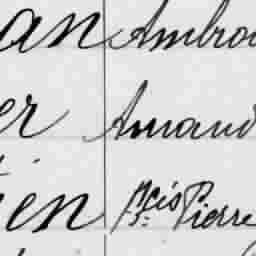 an Ambro
er Amand
ien fcis Pierre